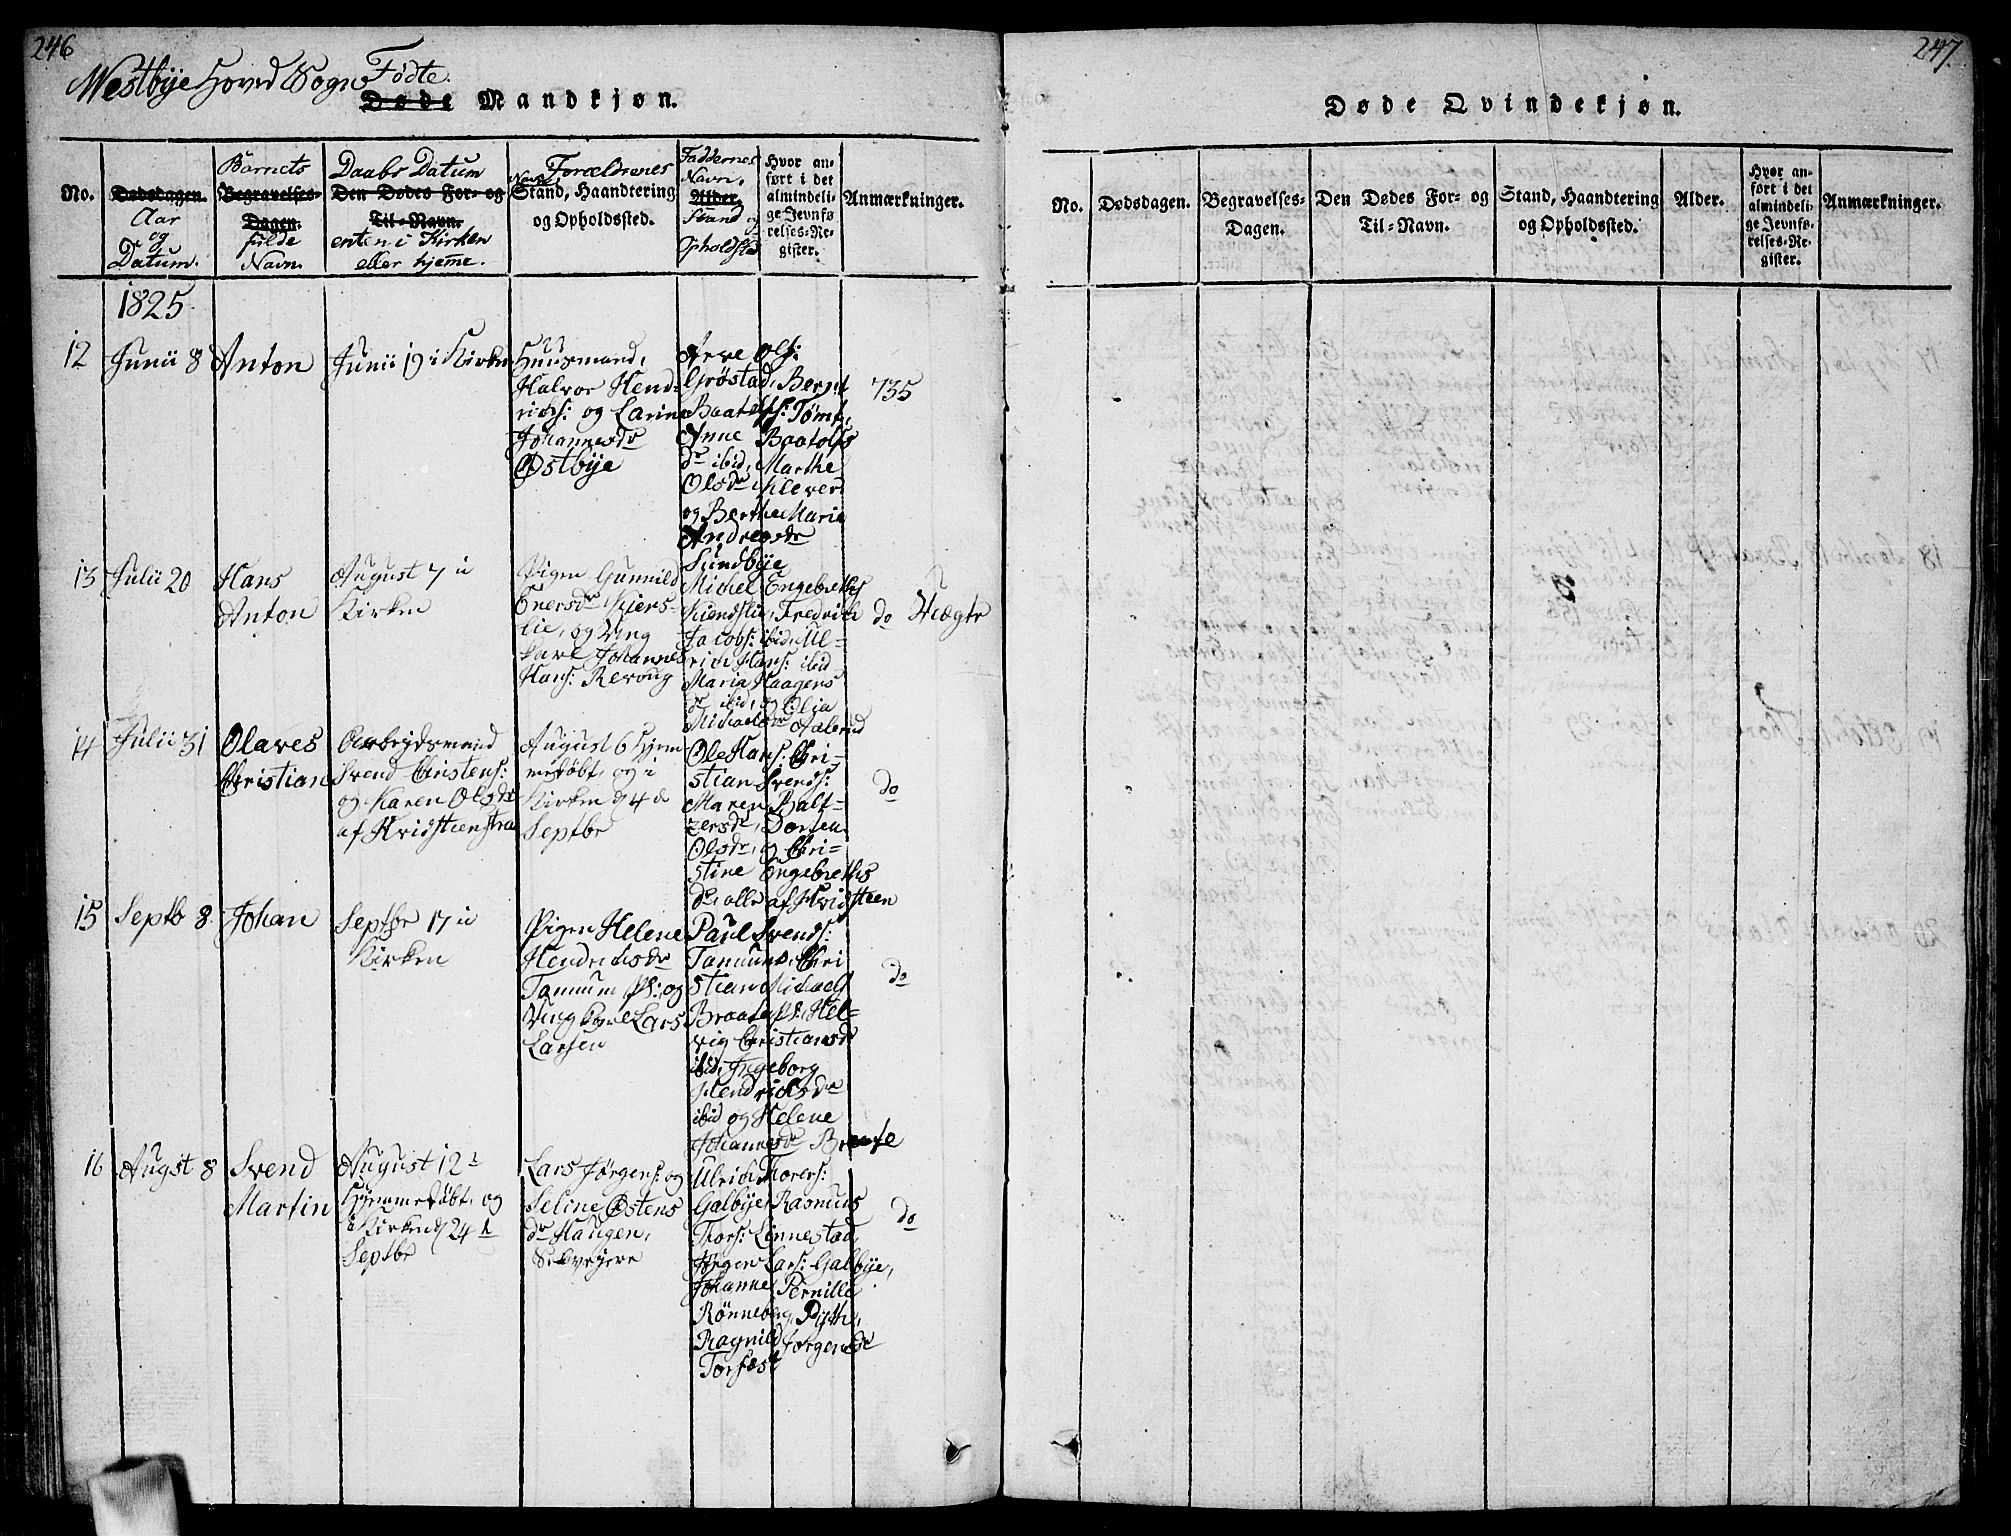 246
Westbye Hoved Sogn
Fødte.
Døde Mandkjøn.
No.
Dødsdagen.
Aar
og
Datum.
Barnets
Begravelses-
Dagen.
fulde
Navn.
Daabs Datum
Den Dødes For- og
Til-Navn.
enten i Kirken
eller hjem̄e.
Forældrenes
Navn,
Stand, Haandtering
og Opholdsted.
Faddernes
Navn,
Alder.
Stand og
Opholdsted
Hvor an-
ført i det
almindeli-
ge Jevnfø-
relses-Re-
gister.
Anmærkninger.
1825
12
Junii 8
Anton
Junii 19 i Kirken
Huusmand,
Halvor Hend-
richs: og Larine
Johannesdr
Østbye
Arve Ols:
Grøstad, Bernt
Baatolfs: Tømt,
Anne Baatolfs
dr ibid, Marthe
Olsdr Klever
og Berthe Marie
Andreasdr
Sundbye
735
13
Julii 20
Hans
Anton
August 7 i
Kirken
Pigen Gunnild
Enersdr Kjens-
lie, og Ung
karl Johannes
Hans: Revoug
Michel Engebreths
Kiendslie, Fredrich
Jacobs: ibid, Ul-
rich Hans: ibid
Maria Haagens
dr ibid, og Olia
Michaelsdr Aalerud
do
Uægte
14
Julii 31
Olaves
Christian
Arbeydsmand
Svend Christens:
og Karen Olsdr
af Hvidsteenstran
August 6 hjem
medøbt, og i
Kirken d 4 de
Septbr
Ole Hans: Chri-
stian Svends:
Maren Balt-
zersdr, Dorthe
Olsdr, og Chri-
stine Engebreths
dr, alle af Hvidsteen
do
15
Septb 8
Johan
Septbr 17 i
Kirken
Pigen Helene
Hendrichsdr
Tamum Pl: og
Ungkarl Lars
Larsen
Paul Svends:
Tamum, Chri
stian Michaels
Braate pl: Hel-
vig Christiansdr
ibid, Ingeborg
Hendrichsdr
ibid og Helene
Johannesdr
do
16
Augst 8
Svend
Martin
August 12
Hjemmedøbt, og
i Kirken d 24 de
Septbr
Lars Jørgens: og
Seline Østens
dr Haugen,
Selvejere
Ulrich Torers:
Galbye, Rasmus
Thors: Linnestad,
Jørgen Lars: Galbye,
Johanne Pernille
Rønneberg,
Ragnild Jørgensdr
do
247
Døde Qvindekjøn.
No.
Dødsdagen.
Begravelses-
Dagen.
Den Dødes For- og
Til-Navn.
Stand, Haandtering
og Opholdssted.
Alder.
Hvor an-
ført i det
almindeli-
ge Jevnfø-
relses-Re-
gister.
Anmærkninger.